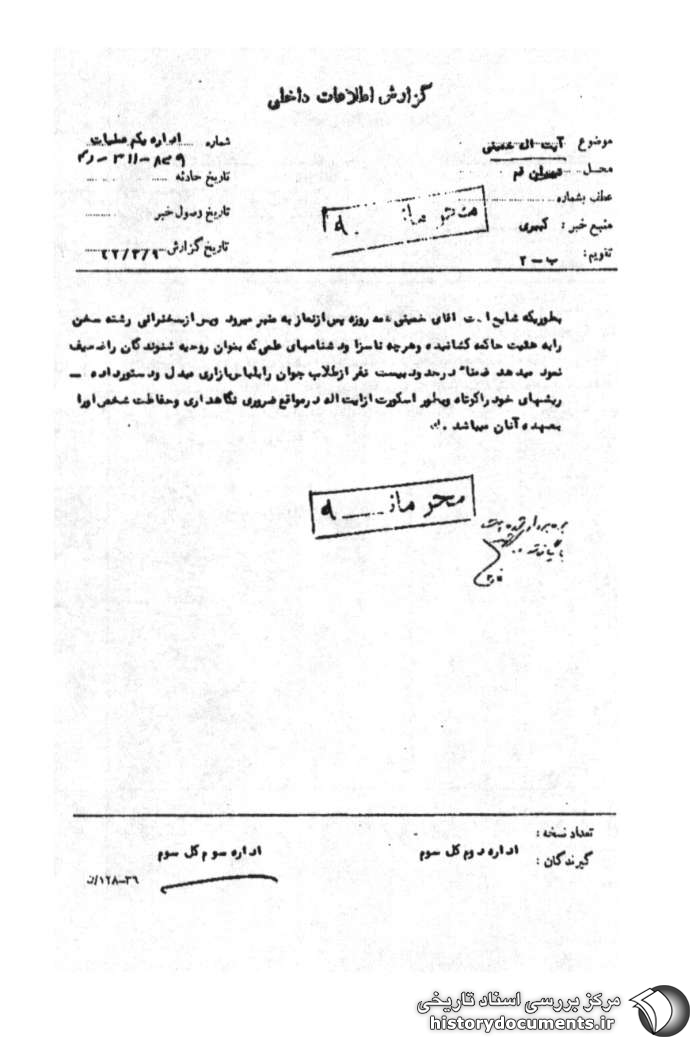 گزارش اطلاعات داخلی
موضوع آیت اله خمینی
شماره اداره یکم عملیات
محل تهران قم
تاریخ حادثه
عطف بشماره
منبع خبر : کبیری
تاریخ وصول خبر
تقویم: ب - ۲
تاریخ گزارش ۴۲/۳/۹
محرمانه
بطوریکه شایع است آقای خمینی همه روزه پس از نماز به منبر میرود وپس از سخنرانی رشته سخن
رابه هئیت حاکمه کشانیده وهرچه ناسزا ودشنامهای علمی که بتوان روحیه شنوندگان راضعیف
نمود میدهد ضمنا" درحدود بیست نفر ازطلاب جوان رابلباس بازاری مبدل ودستورداده ـ
ریشهای خود راکوتاه وبطور اسکورت ازایت اله درمواقع ضروری نگاهداری وحفاظت شخص اورا
بعهده آنان میباشد .
محرمانه
تعداد نسخه :
گیرندگان :
اداره دوم کل سوم
اداره سوم کل سوم
۳۶-۱۲۸/ن
مرکز بررسی اسناد تاریخی
historydocuments.ir